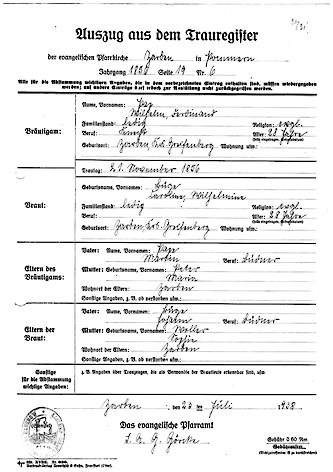 Auszug aus dem Trauregister
der evangelischen Pfarrkirche Zarben in Pommern
Jahrgang 1856 Seite 19 Nr. 6
Alle für die Abstammung wichtigen Angaben, die in dem vorbezeichneten Eintrag enthalten sind, müssen wiedergegeben
werden; auf andere Einträge darf jedoch zur Ausfüllung nicht zurückgegriffen werden.
Bräutigam:
Name, Vornamen:
Wilhelm, Ferdinand
Familienstand: ledig Religion: evgl.
Beruf: Alter: 28 Jahre
Geburtsort: Zarben, Krs. Greifenberg Wohnung usw.:
Trautag: 21. November 1856
Braut:
Geburtsname, Vornamen:
Karoline, Wilhelmine
Familienstand: ledig Religion: evgl.
Alter: 28 Jahre
Geburtsort: Zarben, Krs. Greifenberg Wohnung usw.:
Eltern des
Bräutigams:
Vater: Name, Vornamen:
Martin Beruf: Büdner
Mutter: Geburtsname, Vornamen: Peter
Maria
Wohnort der Eltern: Zarben
Sonstige Angaben, z. B. ob verstorben usw.:
Eltern der
Braut:
Vater: Name, Vornamen:
Beruf: Büdner
Mutter: Geburtsname, Vornamen:
Sofie
Wohnort der Eltern: Zarben
Sonstige Angaben, z. B. ob verstorben usw.:
Sonstige
für die Abstammung
wichtige Angaben:
z. B. Angaben über Trauzeugen, die als Verwandte der Brautleute erkennbar sind, usw.
Zarben, den 23. Juli 1938
Das evangelische Pfarramt
Gebühr 0 60 Rm